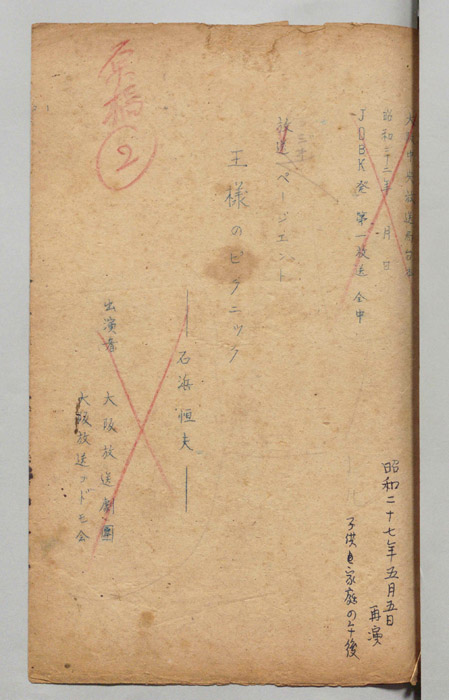 昭和二十七年五月五日
再演
子供と家庭の午後
昭和二十二年 月 日
JOBK発 第一放送 全中
放送ページエント
王様のピクニック
石濱恒夫
出演者 大阪放送劇團
大阪放送コドモ会
原稿
②